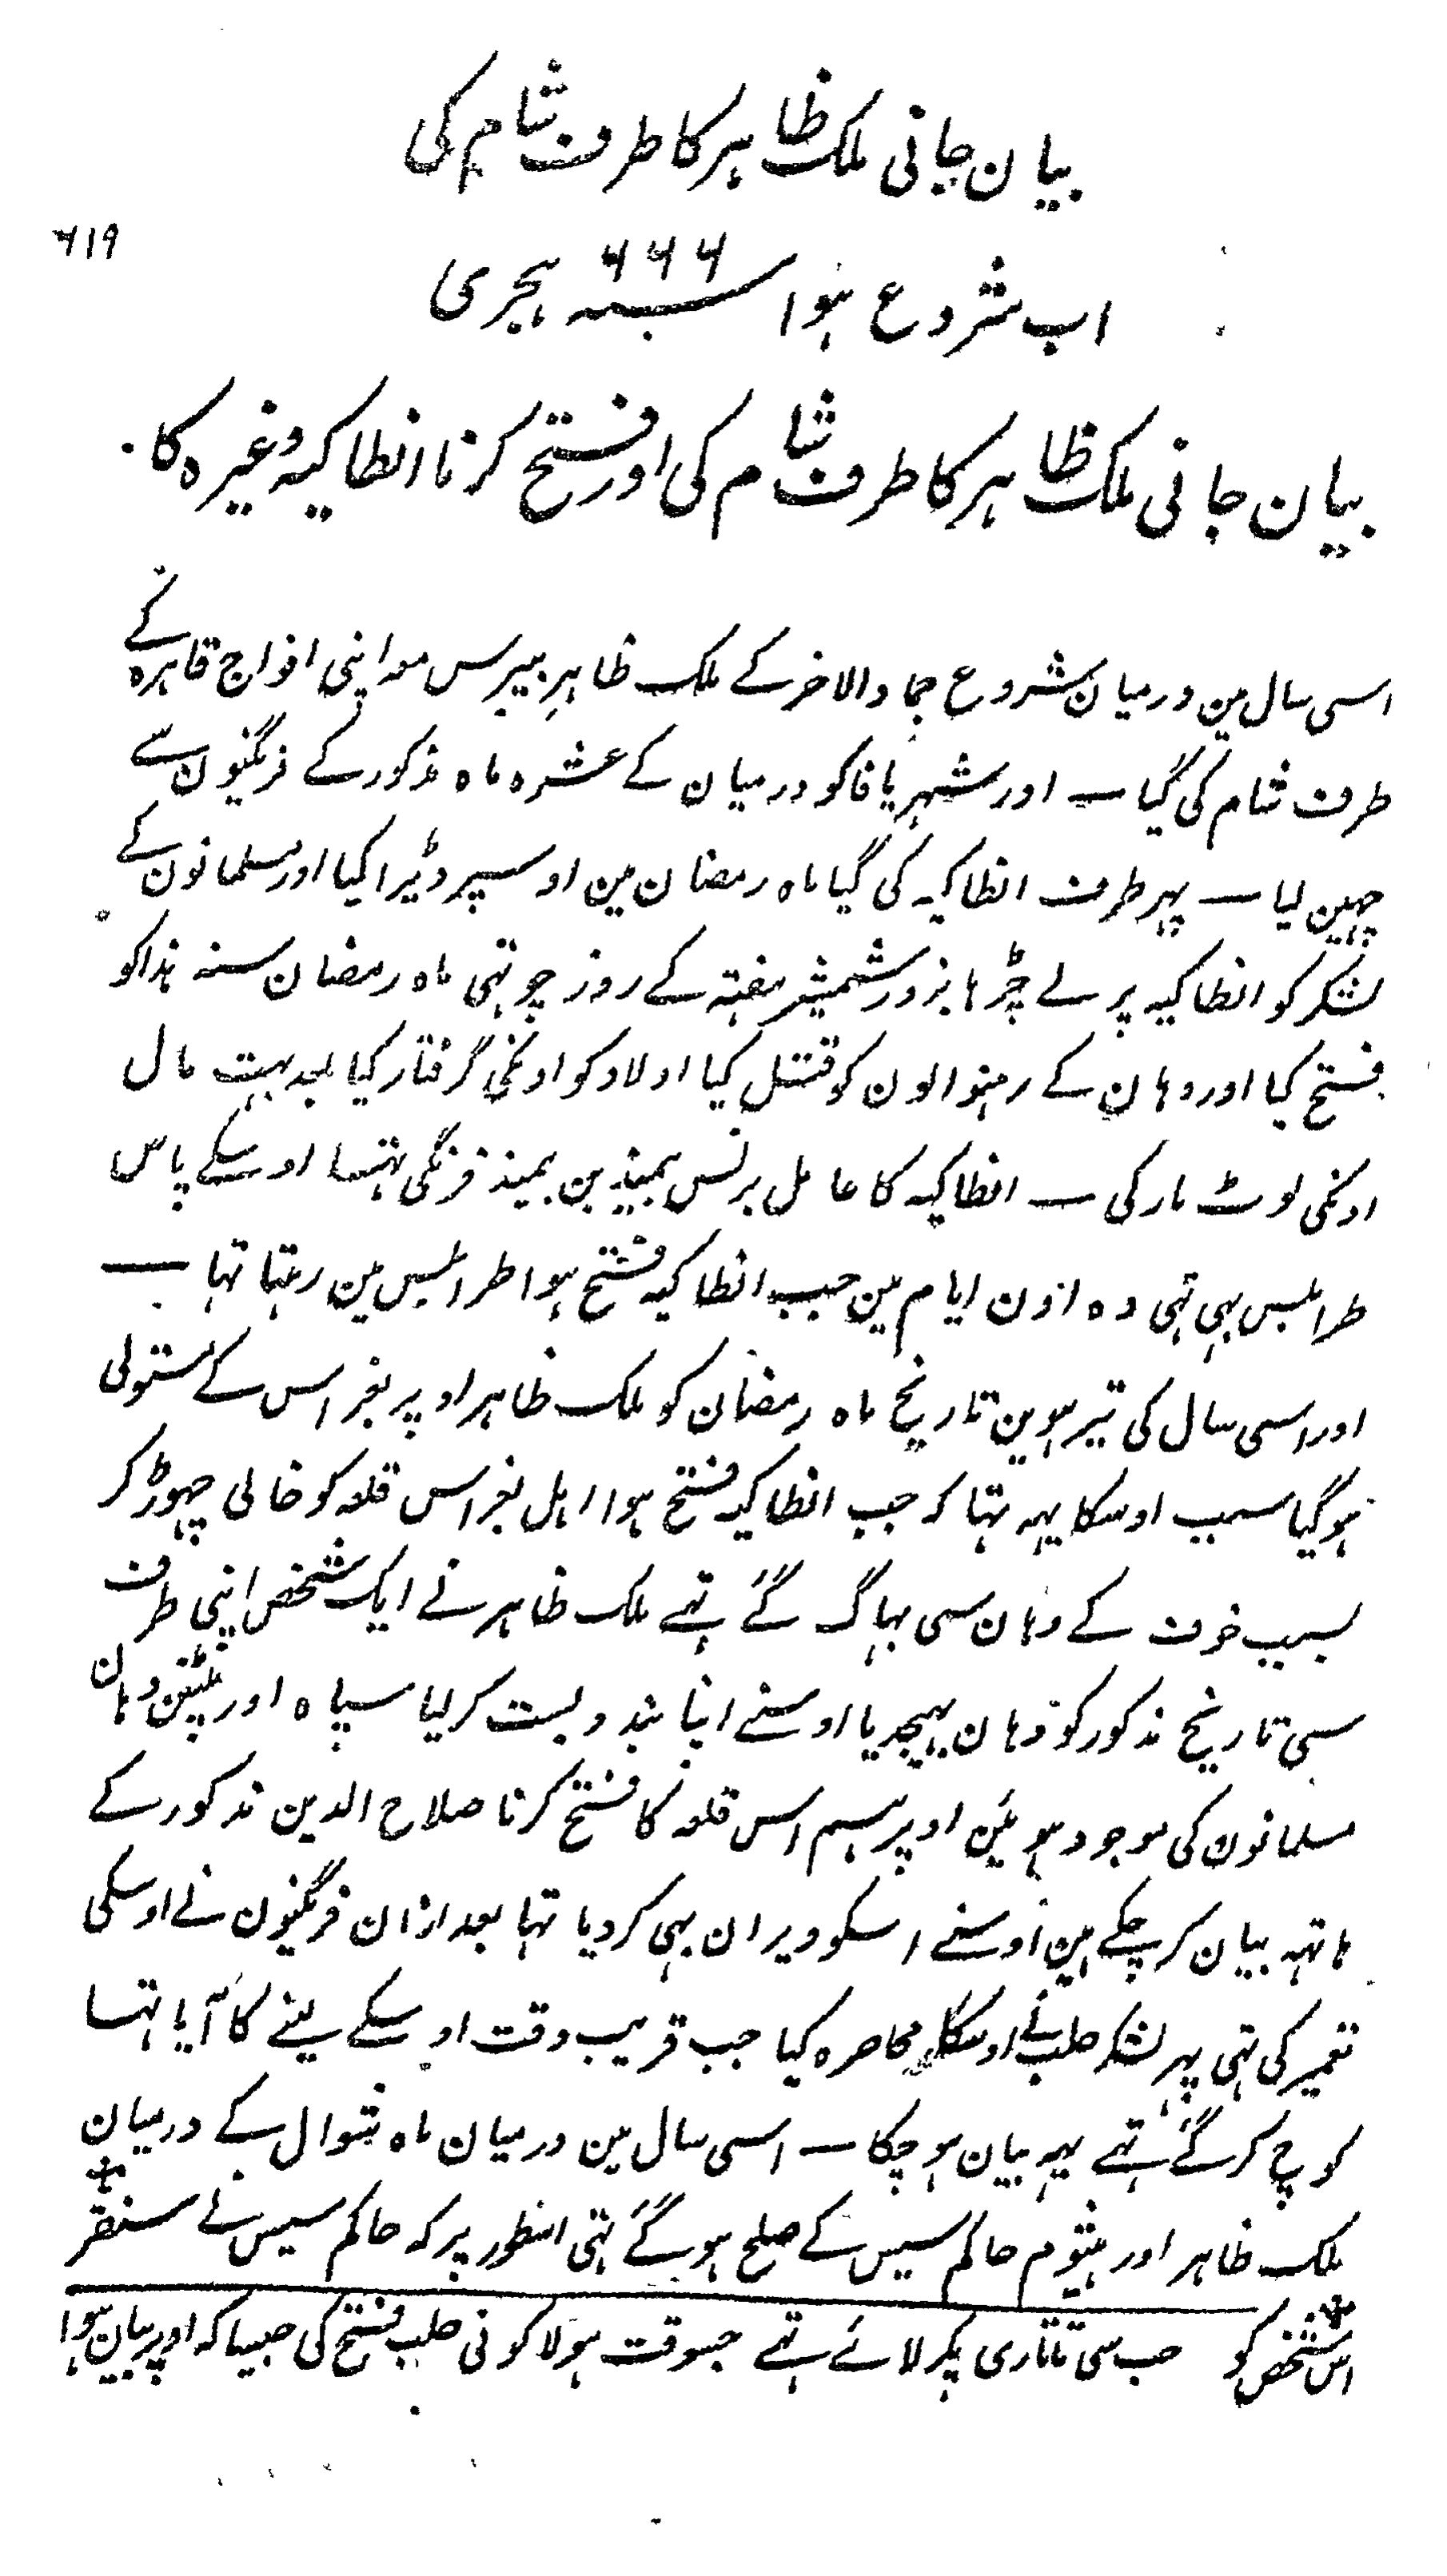 بیان جانی ملک ظاہر کا طرف شام کی
۶۱۹
اب شروع ہوا سنہ ۶۶۶ ہجری
بیان جانی ملک ظاہر کا طرف شام کی اور فتح کرنا انطاکیہ وغیرہ کا
اسی سال مین درمیان شروع جمادالاخر کے ملک ظاہر بیبرس معہ اپنی افواج قاہرہ کے
طرف شام کی گیا — اور شہر یافا کو درمیان کے عشرہ ماہ مذکور کے فرنگیون سے
چہین لیا — پہر طرف انطاکیہ کی گیا ماہ رمضان مین اوسپر ڈیرا کیا اور مسلمانون کے
لشکر کو انطاکیہ پر لے چڑہا بزور شمشیر ہفتہ کے روز چوتہی ماہ رمضان سنہ ہذا کو
فتح کیا اور وہان کے رہنوالون کو قتل کیا اولاد کو اونکی گرفتار کیا بعد بہت مال
اونکی لوٹ مار کی — انطاکیہ کا عامل برنس بیمند بن بیمند فرنگی تہا اوسکے پاس
طرابلس بہی تہی وہ اون ایام مین جب انطاکیہ فتح ہوا طرابلس مین رہتا تہا —
اور اسی سال کی تیرہوین تاریخ ماہ رمضان کو ملک ظاہر اوپر بغراس کے مستولی
ہوگیا سبب اوسکا یہہ تہا کہ جب انطاکیہ فتح ہوا اہل بغراس قلعہ کو خالی چہوڑ کر
بسبب خوف کے وہان سی بہاگ گئے تہے ملک ظاہر نے ایک شخص اپنی طرف
سی تاریخ مذکور کو وہان بہیجدیا اوسنے اپنا بندوبست کرلیا سپاہ اور پلٹنین وہان
مسلمانون کی موجود ہوئین اوپر ہم اس قلعہ کا فتح کرنا صلاح الدین مذکور کے
ہاتہہ بیان کرچکے ہین اوسنے اسکو ویران بہی کردیا تہا بعد ازان فرنگیون نے اوسکی
تعمیر کی تہی پہر لشکر حلب نے اوسکا محاصرہ کیا جب قریب وقت اوسکے لینے کا آیا تہا
کوچ کر گئے تہے یہہ بیان ہوچکا — اسی سال مین درمیان ماہ شوال کے درمیان
ملک ظاہر اور ہیثوم حاکم سیس کے صلح ہوگئے تہی اسطور پر کہ حاکم سیس نے سنقر
اس شخص کو حلب سی تاتاری پکر لائے تہے جسوقت ہولاکو نی حلب فتح کی جیسا کہ اوپر بیان ہوا